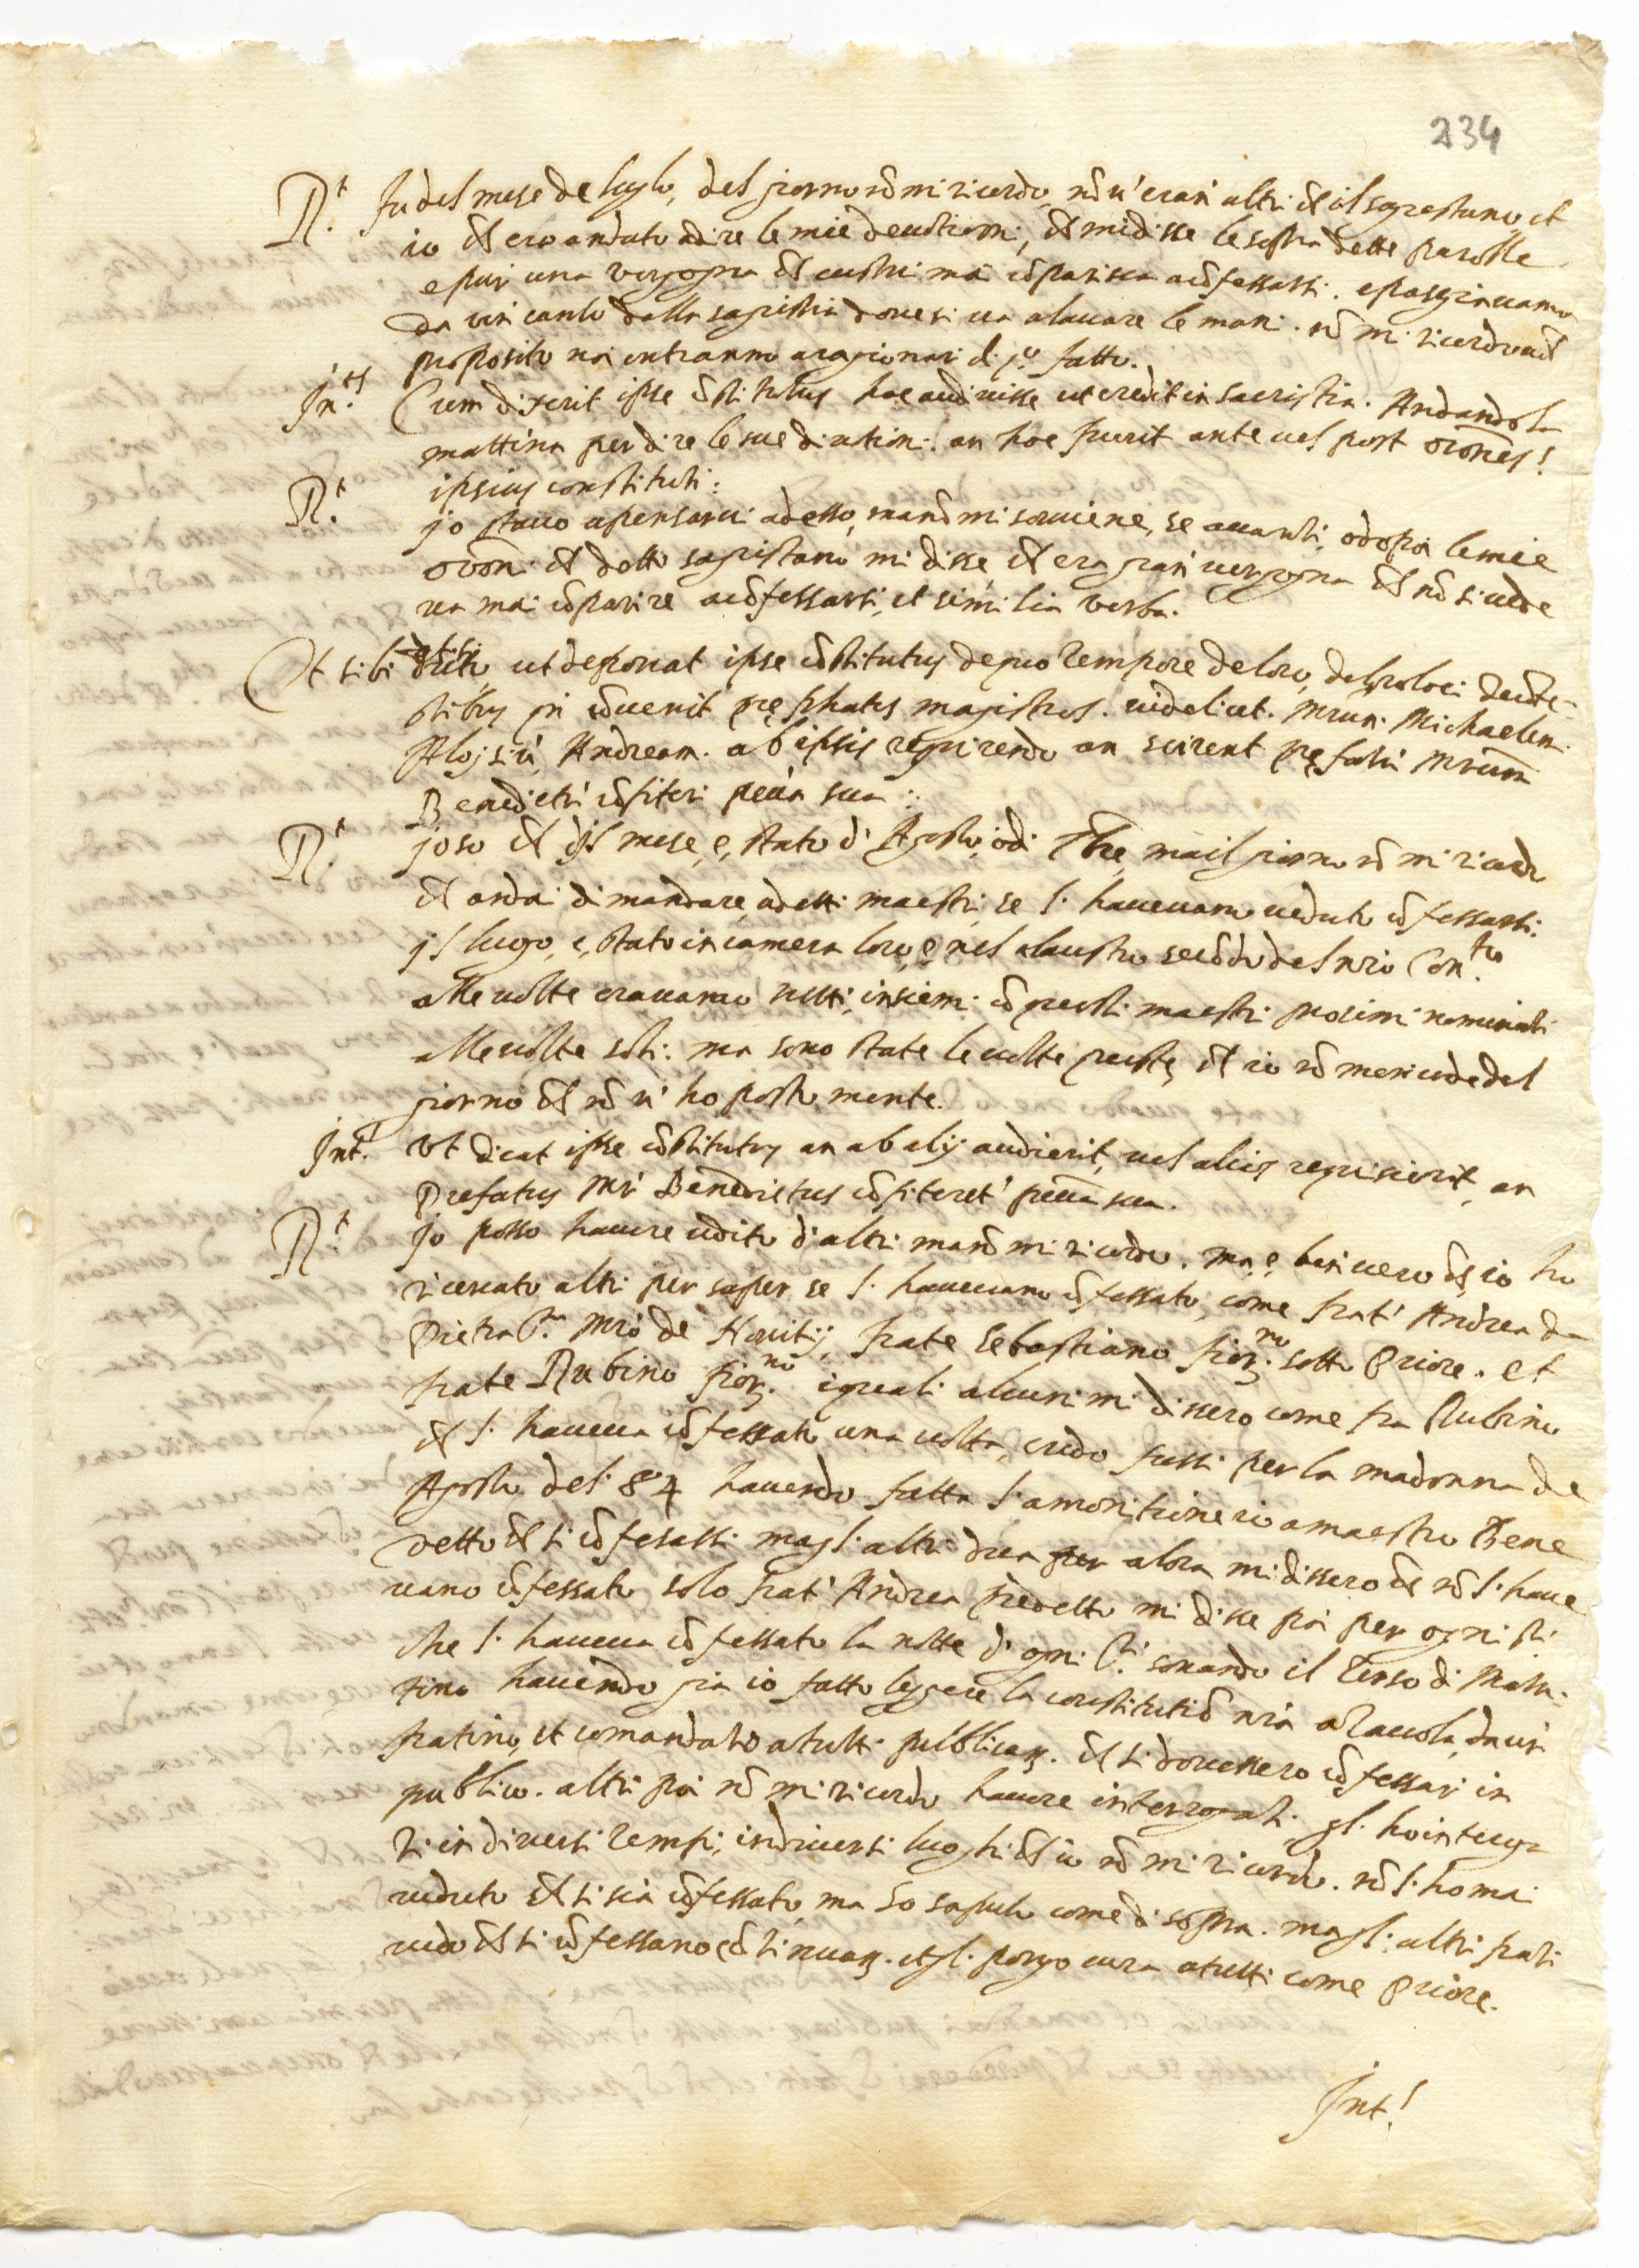 234
R.t fu del mese de luglo, del giorno nõ mi ricordo, nõ v'eran altri ch il sagrestano, et
io ch ero andato a dire le mie deuotioni, ch mi disse le sopra dette parolle
e pur una vergogna ch custui mai cõparisca a cõfessarsi. e passgiauamo
da un canto dalla sagristia doue si ua a lauare le mani. nõ mi ricordo a ch
proposito noi entrammo a ragionar di q.o fatto.
Int. Cum dixerit ipse cõstitutus hoc audiuisse ut credit in sacristia. Andando la
mattina per dire le sue orationi. an hoc fuerit ante uel post orõnes
ipsius constituti:
R.t jo stauo a pensarui adesso, ma nõ mi souuiene, se auanti, o dopoi le mie
orõni ch detto sagristano mi disse ch era gran uergogna ch nõ si uede
ua mai cõparire a cõfessarsi, et similia verba.
Et sibi dicto ut deponat ipse cõstitutus de quo tempore de loco, de loco loci de cõte-
stibus in cõuenit pręphatus magistros. uidelicet. Mrum. Michaelem.
Aloysiũ, Andream. ab ipsis requirendo an scirent pręfatũ Mrum
Benedictũ cõfiteri pctã sua:
R.t jo so ch jl mese, e, stato d'Agosto, o di 7bre, ma il giorno nõ mi ricordo
ch andai dimandare, a detti maestri se l'haueuano ueduto cõfessarsi.
jl luogo, e, stato in camera loro, e nel claustro secõdo del nrõ Con.to
alle uolte erauamo tutti, insiemi cõ questi maestri prosimi nominati
alle uolte soli: ma sono state le uolte queste, ch io nõ me ricordo del
giorno ch nõ u'ho posto mente.
Int. Vt dicat ipse cõstitutus an ab alijs audierit, uel alios requisierit, an
Prefatus Mr Benedictus cõfiteret' pctã sua.
R.t Jo posso hauere udito d'altri ma nõ mi ricordo. ma, e, ben uero ch io ho
ricercato altri per saper se l'haueuano cõfessato, come frat' Andrea da
Pietra S.ta Mrõ de Nouitij, frate Sebastiano fior.no sotto Priore. et
frate Rubino fior.no i quali alcuni mi dissero come fra Rubino
ch l'haueua cõfessato una uolta, credo fussi per la madonna de
Agosto del 84 hauendo fatta l'amonitione io a maestro Bene
detto ch si cõfesassi ma gl'altri dua per alora mi dissero ch nõ l'haue
uano cõfessato solo frat' Andrea predetto mi disse poi per ogni Sti
che l'haueua cõfessato la notte d'ogni Sti sonando il Terso di Matu-
tino hauendo gia io fatto leggere la constitutiõ nrã a Tauola, da un
fratino, et comandato a tutti pubblicam. ch si douessero cõfessar in
publico. altri poi nõ mi ricordo hauere interrogati. gl'ho interoga
ti in diuersi tempi, in diuersi luoghi ch io nõ mi ricordo. nõ l'ho mai
ueduto ch si sia cõfessato, ma lo saputo come di sopra. ma gl'altri frati
uedo ch si cõfessano cõtinuam. et gl'porgo cura a tutti come Priore.
Int.